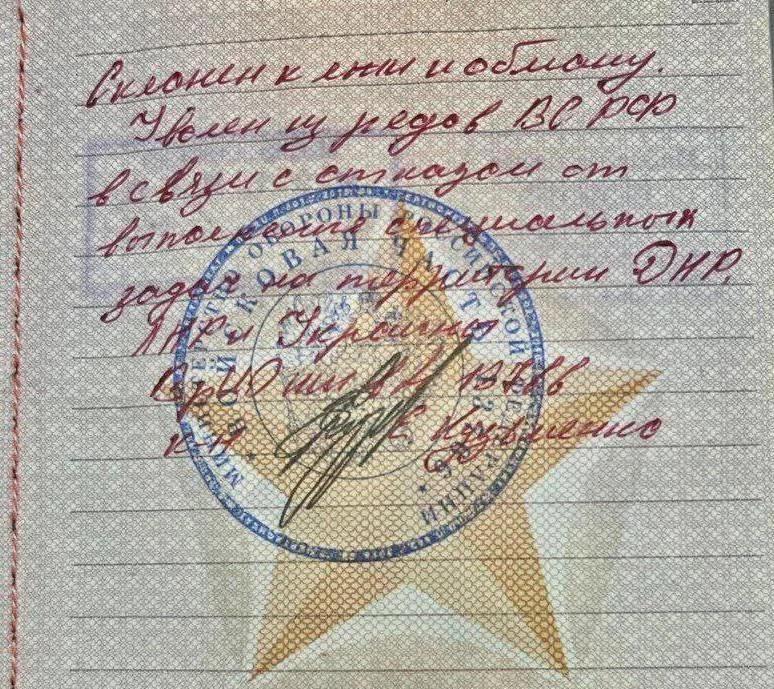 Склонен к лжи и обману.
Уволен из рядов ВС РФ
в связи с отказом от
выполнения специальных
задач на территории ДНР,
ЛНР и Украины
Кузьменко
МИНИСТЕРСТВО ОБОРОНЫ РОССИЙСКОЙ ФЕДЕРАЦИИ
ВОЙСКОВАЯ ЧАСТЬ